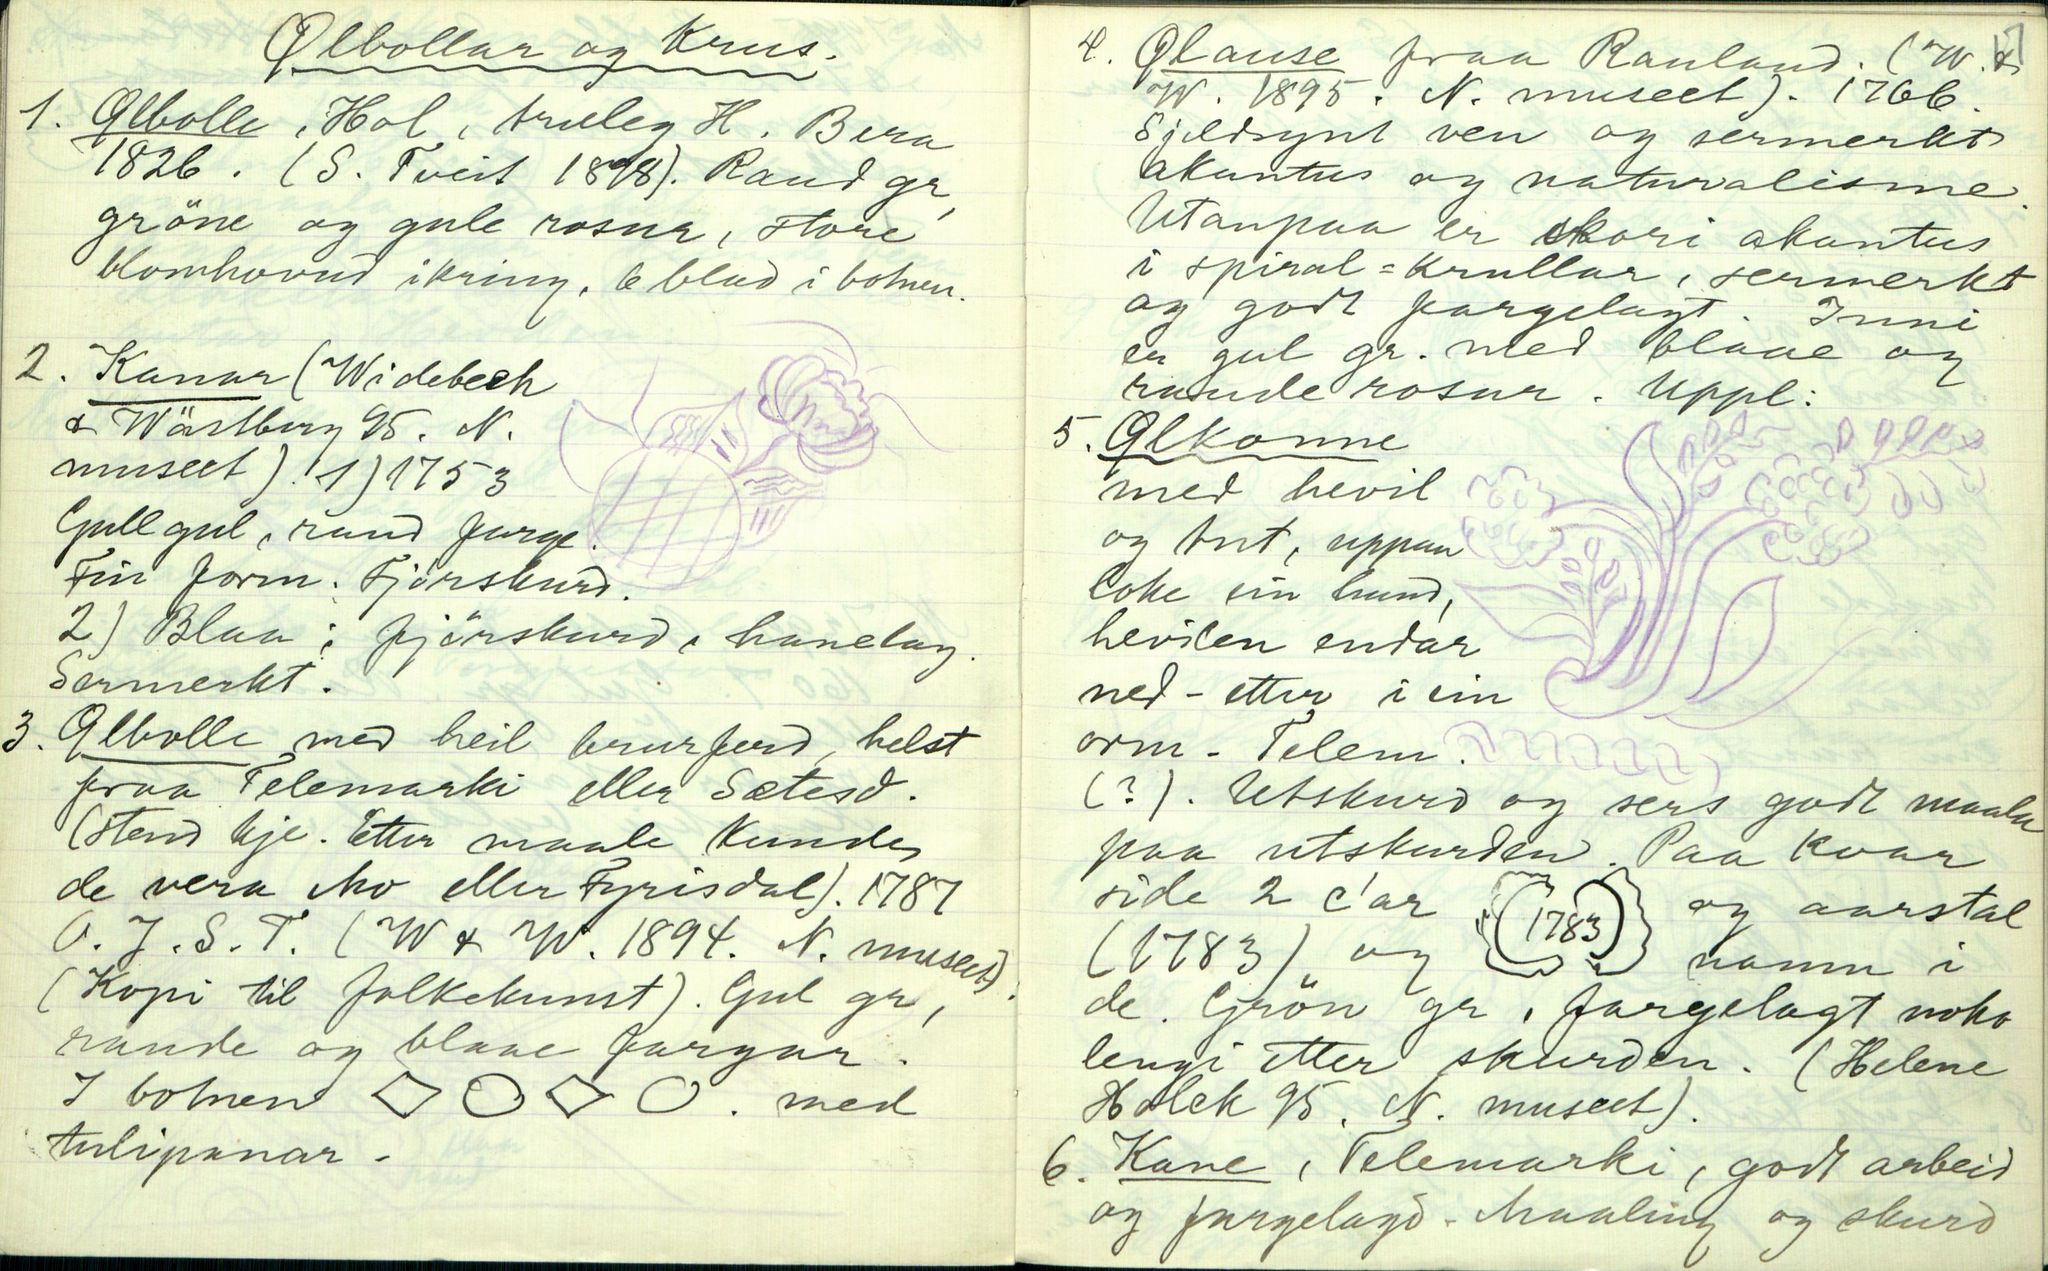 Ølbollar og Krus.
1. Ølbolle, Hol, truleg H. Bera
1826. (S. Tveit 1898). Raud gr,
gröne og gule rosur, store
blomhovud ikring, 6 blad i botnen.
2. Kanar (Widebech
& Wästberg 95. N.
museet). 1) 1753
Gullgul, raud farge.
Fin form. Fjørskurd.
2) Blaa; fjörskurd, hanelag.
Sermerkt.
3. Ølbolle med heil brurferd, helst
fraa Telemarki eller Sætesd.
(stend kje. Etter maale kunde
de vera Mo eller Fyrisdal). 1787
O. J. S. T. (W & W. 1894. N. museet).
(Kopi til folkekunst). Gul gr,
raude og blaae fargar.
I botnen . med
tulipanar -
4. Ølause fraa Rauland. (W. &
W. 1895. N. museet). 1766.
Sjeldsynt ven og sermerkt
akantus og naturalisme.
Utanpaa er skori akantus
i spiral=krullar, sermerkt
og godt fargelagt. Inni
er gul gr. med blaae og
raude rosur. Uppl:
5. Ølkanne
med hevil
og tut, uppaa
loke ein hund,
hevilen endar
ned-etter i ein
orm - Telem.
(?). Utskurd og sers godt maala
paa utskurden. Paa kvar
side 2 c'ar 1783 og aarstal
(1783) og namn i
de. Grön gr, fargelagt noko
lengi etter skurden. (Helene
Holek 95. N. museet).
6. Kane, Telemarki, godt arbeid
og fargelagd. Maaling og skurd